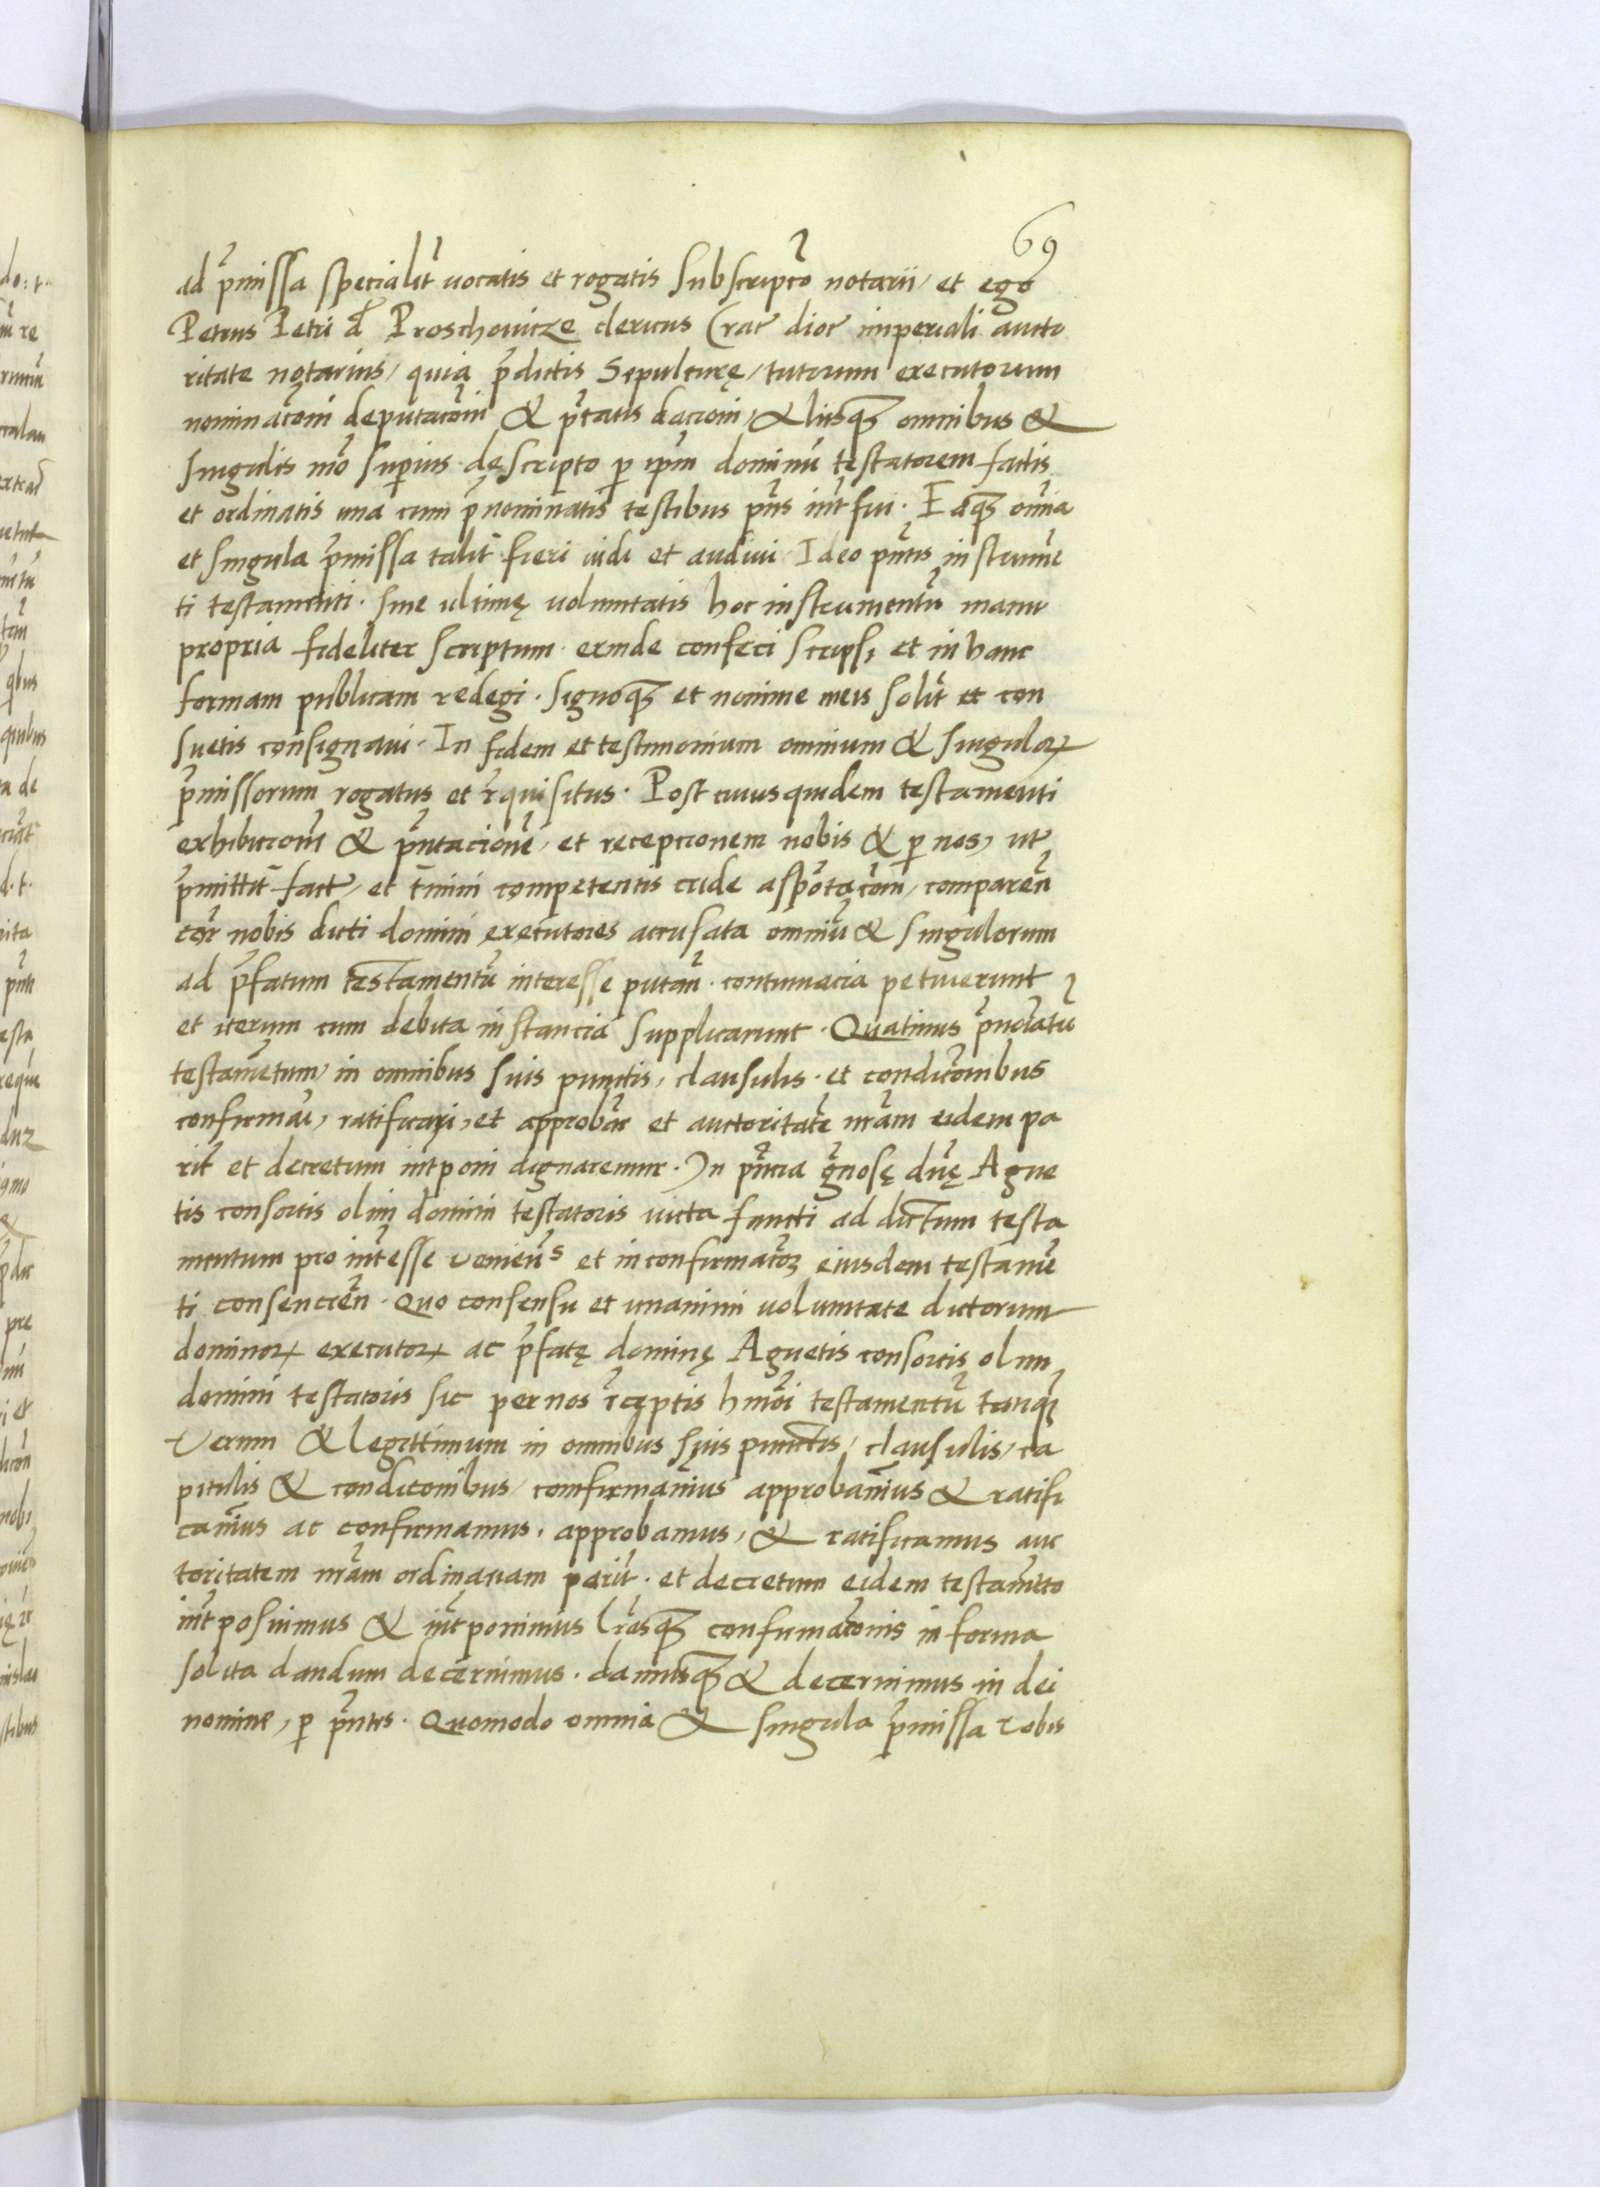 69
ad p̃missa specialit̃ uocatis et rogatis subscripto᷑ notarii, et ego
Petrus Petri d̃ Proschouicze clericus Crac̃ dioc̃ imperiali aucto
ritate notarius, quia p̃dictis Sepulturę, tutorum executorum
nominac̃oni deputac̃oni & p̃tatis dacioni, Aliisq; omnibus &
singulis mõ superius descripto p̱ ip̃m dominũ testatorem factis
et ordinatis una cum p̃nominatis testibus p̃ns int̃fui. Eaq; oĩa
et singula p̃missa talit̃ fieri uidi et audiui. Ideo p̃ntis instrumẽ
ti testamenti. siue ultimę uoluntatis hoc instrumentũ manu
propria fideliter scriptum exinde confeci scripsi et in hanc
formam publicam redegi. signoq; et nomine meis solit̃ et con
suetis consignaui. In fidem et testimonium omnium & singuloꝝ
p̃missorum rogatus et r̃quisitus. Post cuiusquidem testamenti
exhibicionẽ & p̃ntacionẽ, et recepcionem nobis & p̱ nos, ut
p̃mittit̃ fact̃, et t̃mini competentis exinde asp̃ortac̃oni, comparen̄
cor̃ nobis dicti domini executores accusata omniũ & singulorum
ad p̃fatum testamentũ interesse putan̄. contumacia petiuerunt
et iterum cum debita instancia supplicarunt. Quatinus p̃notatũ
testamẽtum, in omnibus suis punctis, clausulis. et condic̃onibus
confirmari, ratificari, et approbar̃ et auctoritatẽ nr̃am eidem pa
rit̃ et decretum int̃poni dignaremur. In p̃ncia g̃nosę dn̄ę Agne
tis consortis olim domini testatoris uicta functi ad dictum testa
mentum pro int̃esse venien̄s et in confirmac̃oꝫ eiusdem testamẽ
ti consencien̄. Quo consensu et unanimi uoluntate dictorum
dominoꝝ executoꝝ ac p̃fatę dominę Agnetis consortis olim
domini testatoris sic per nos r̃ceptis hmõi testamentũ tanq̃
Verum & legittimum in omnibus suis punctis, clausulis, ca
pitulis & condic̃onibus, comfirmauĩus approbauĩus & ratifi
cauĩus ac confirmamus. approbamus, & ratificamus auc
toritatem nr̃am ordinariam parit̃. et decretum eidem testamẽto
int̃posuimus & int̃ponimus Lr̃asq; confirmac̃onis in forma
solita dandum decernimus. damusq; & decernimus in dei
nomine, p̱ p̃ntes. Quomodo omnia & singula p̃missa vobis